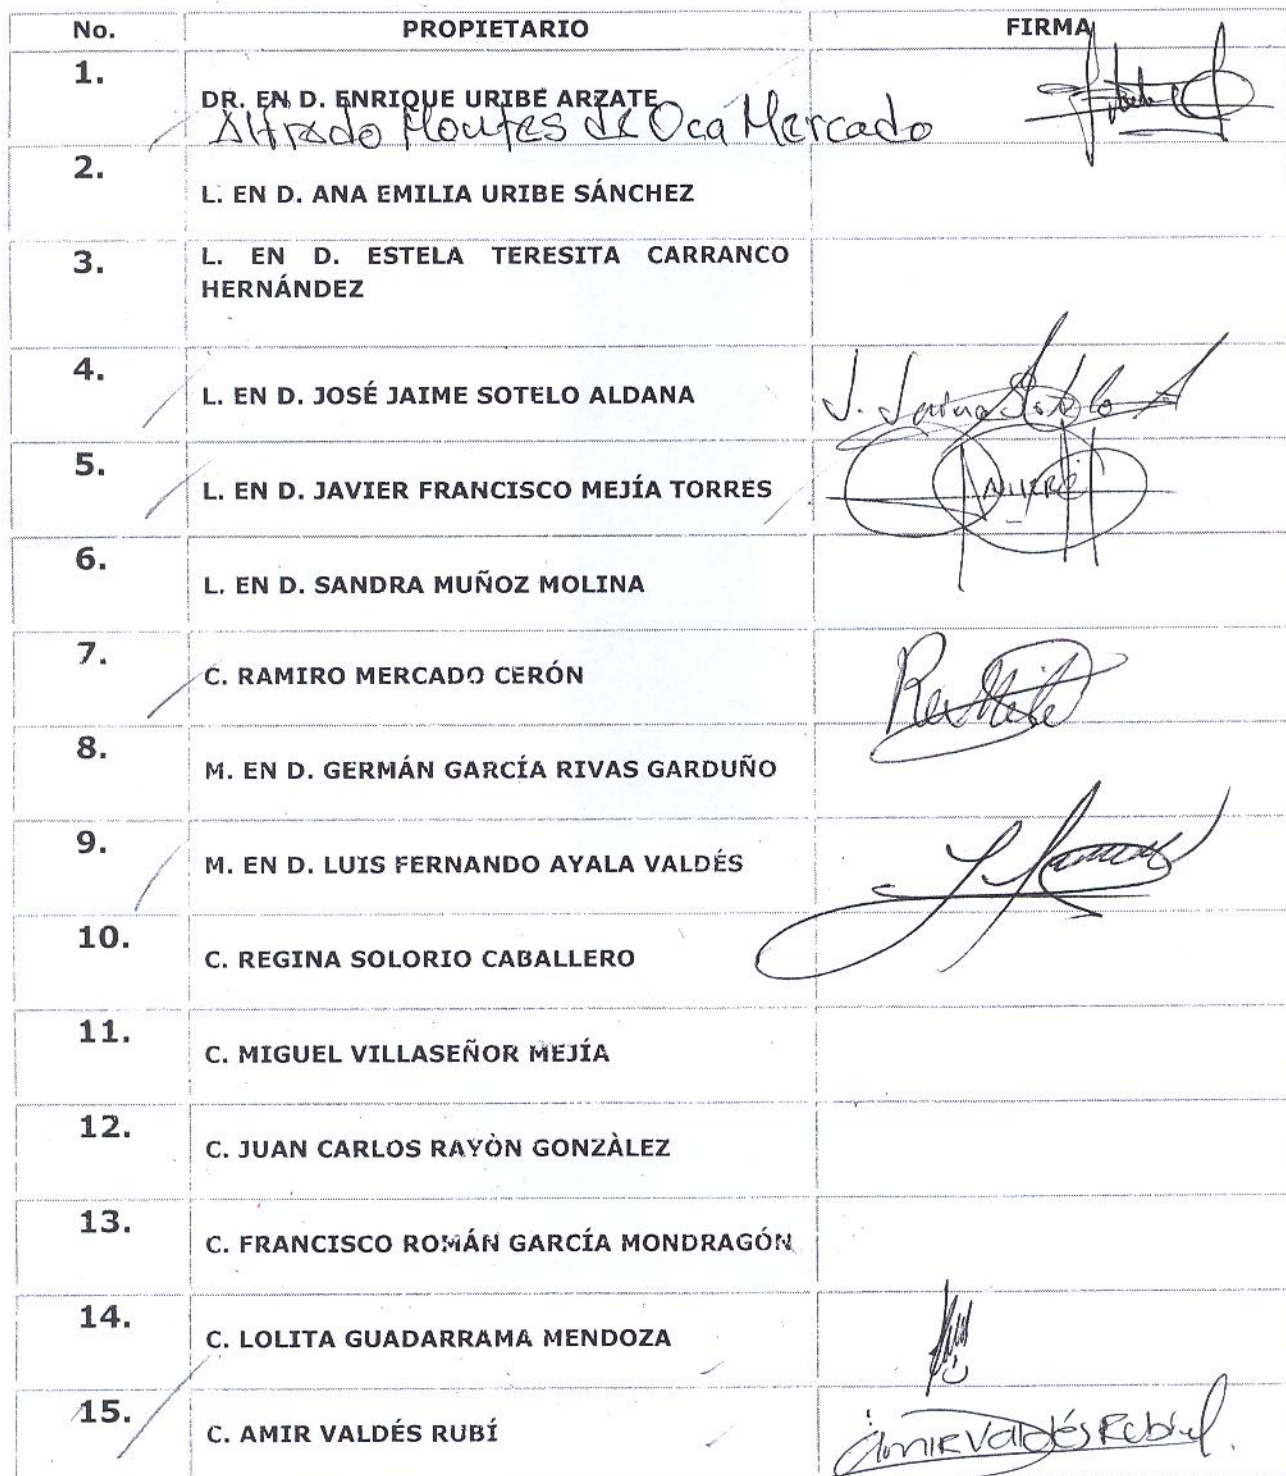 No. PROPIETARIO FIRMA
1. DR. EN D. ENRIQUE URIBE ARZATE
Alfredo Montes de Oca Mercado
2. L. EN D. ANA EMILIA URIBE SÁNCHEZ
3. L. EN D. ESTELA TERESITA CARRANCO
HERNÁNDEZ
4. L. EN D. JOSÉ JAIME SOTELO ALDANA J. Jaime Sotelo A
5. L. EN D. JAVIER FRANCISCO MEJÍA TORRES
6. L. EN D. SANDRA MUÑOZ MOLINA
7. C. RAMIRO MERCADO CERÓN
8. M. EN D. GERMÁN GARCÍA RIVAS GARDUÑO
9. M. EN D. LUIS FERNANDO AYALA VALDÉS
10. C. REGINA SOLORIO CABALLERO
11. C. MIGUEL VILLASEÑOR MEJÍA
12. C. JUAN CARLOS RAYÒN GONZÀLEZ
13. C. FRANCISCO ROMÁN GARCÍA MONDRAGÓN
14. C. LOLITA GUADARRAMA MENDOZA
15. C. AMIR VALDÉS RUBÍ Amir Valdés Rubí